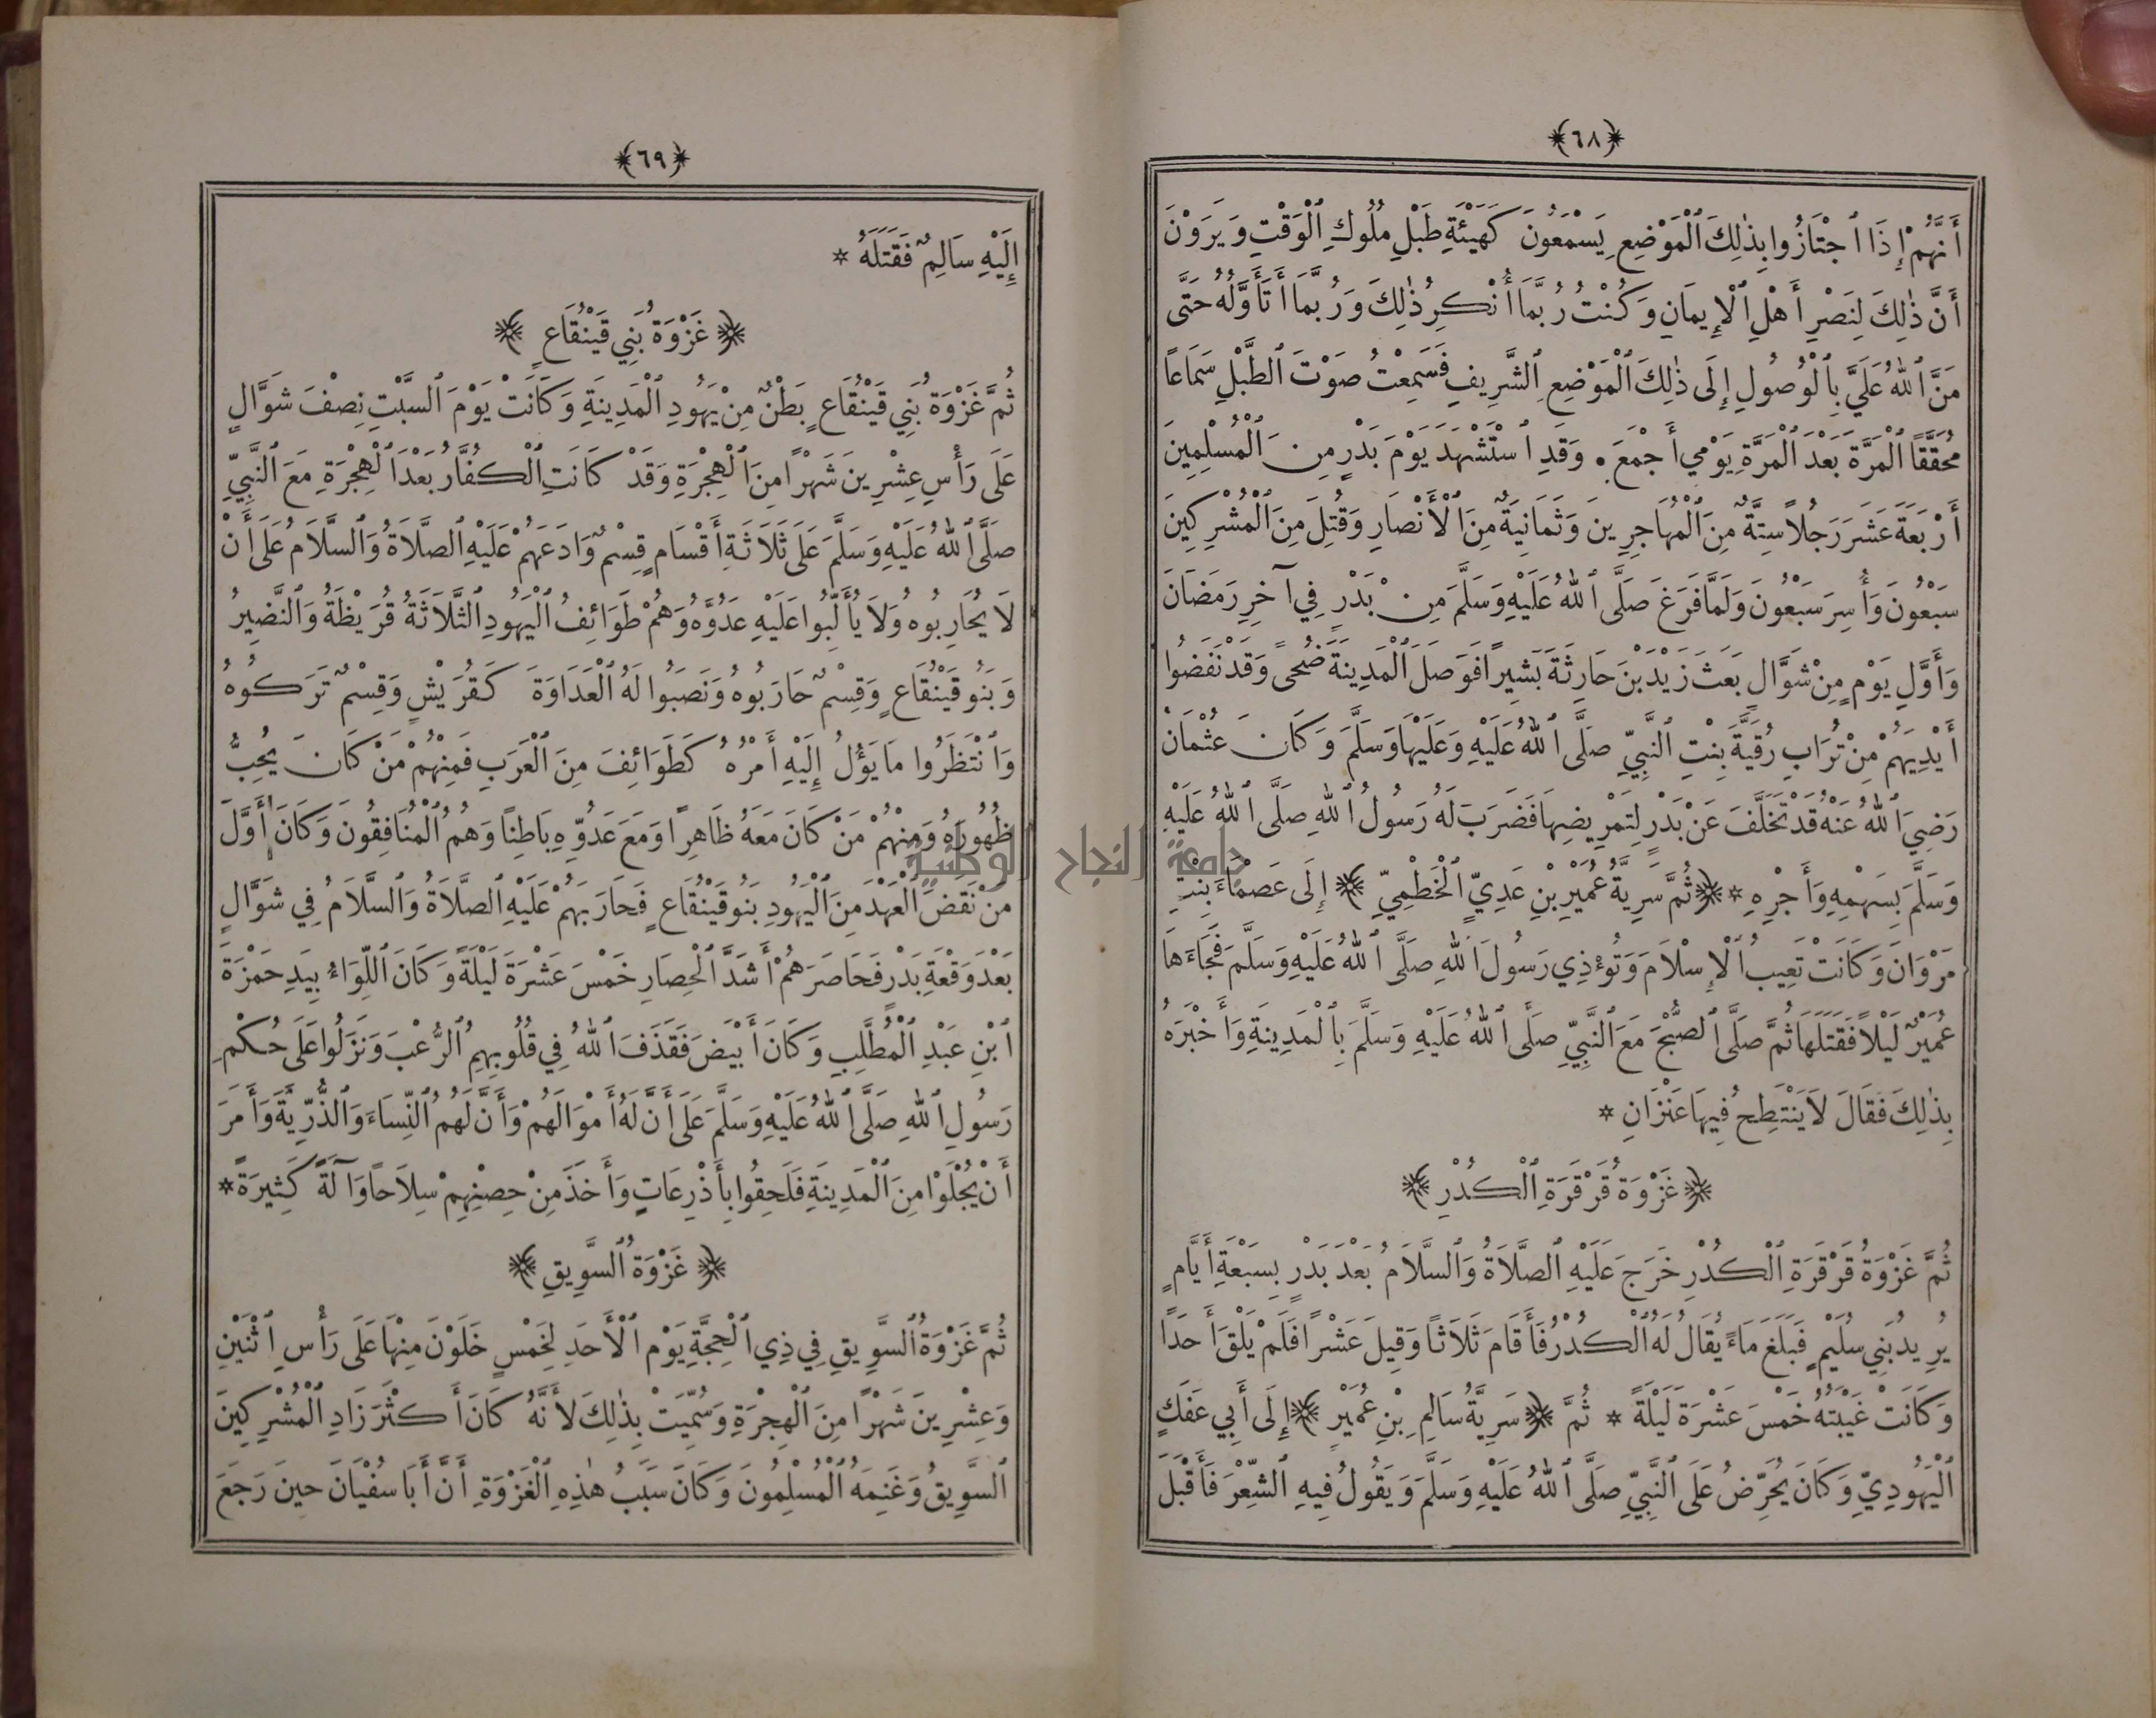 ﴿٦٨﴾
أَنَّهُمْ إِذَا ٱجْتَازُوا بِذٰلِكَ ٱلْمَوْضِعِ يَسْمَعُونَ كَهَيْئَةِ طَبْلِ مُلُوكِ ٱلْوَقْتِ وَيَرَوْنَ
أَنَّ ذٰلِكَ لِنَصْرِ أَهْلِ ٱلْإِيمَانِ وَكُنْتُ رُبَّمَا أُنْكِرُ ذٰلِكَ وَرُبَّمَا أَتَأَوَّلُهُ حَتَّى
مَنَّ ٱللهُ عَلَيَّ بِٱلْوُصُولِ إِلَى ذٰلِكَ ٱلْمَوْضِعِ ٱلشَّرِيفِ فَسَمِعْتُ صَوْتَ ٱلطَّبْلِ سَمَاعًا
مُحَقَّقًا ٱلْمَرَّةَ بَعْدَ ٱلْمَرَّةِ يَوْمِي أَجْمَعَ . وَقَدِ ٱسْتُشْهِدَ يَوْمَ بَدْرٍ مِنَ ٱلْمُسْلِمِينَ
أَرْبَعَةَ عَشَرَ رَجُلًا سِتَّةٌ مِنَ ٱلْمُهَاجِرِينَ وَثَمَانِيَةٌ مِنَ ٱلْأَنْصَارِ وَقُتِلَ مِنَ ٱلْمُشْرِكِينَ
سَبْعُونَ وَأُسِرَ سَبْعُونَ وَلَمَّا فَرَغَ صَلَّى ٱللهُ عَلَيْهِ وَسَلَّمَ مِنْ بَدْرٍ فِي آخِرِ رَمَضَانَ
وَأَوَّلِ يَوْمٍ مِنْ شَوَّالٍ بَعَثَ زَيْدَ بْنَ حَارِثَةَ بَشِيرًا فَوَصَلَ ٱلْمَدِينَةَ ضُحىً وَقَدْ نَفَضُوا
أَيْدِيَهُمْ مِنْ تُرَابِ رُقَيَّةَ بِنْتِ ٱلنَّبِيِّ صَلَّى ٱللهُ عَلَيْهِ وَعَلَيْهَا وَسَلَّمَ وَكَانَ عُثْمَانُ
رَضِيَ ٱللهُ عَنْهُ قَدْ تَخَلَّفَ عَنْ بَدْرٍ لِتَمْرِيضِهَا فَضَرَبَ لَهُ رَسُولُ ٱللهِ صَلَّى ٱللهُ عَلَيْهِ
وَسَلَّمَ بِسَهْمِهِ وَأَجْرِهِ * ﴿ ثُمَّ سَرِيَّةُ عُمَيْرِ بْنِ عَدِيٍّ ٱلْخَطْمِيِّ ﴾ إِلَى عَصْمَاءَ بِنْتِ
مَرْوَانَ وَكَانَتْ تَعِيبُ ٱلْإِسْلَامَ وَتُؤْذِي رَسُولَ ٱللهِ صَلَّى ٱللهُ عَلَيْهِ وَسَلَّمَ فَجَاءَهَا
عُمَيْرٌ لَيْلًا فَقَتَلَهَا ثُمَّ صَلَّى ٱلصُّبْحَ مَعَ ٱلنَّبِيِّ صَلَّى ٱللهُ عَلَيْهِ وَسَلَّمَ بِٱلْمَدِينَةِ وَأَخْبَرَهُ
بِذٰلِكَ فَقَالَ لَا يَنْتَطِحُ فِيهَا عَنْزَانِ *
﴿ غَزْوَةُ قَرْقَرَةِ ٱلْكُدْرِ ﴾
ثُمَّ غَزْوَةُ قَرْقَرَةِ ٱلْكُدْرِ خَرَجَ عَلَيْهِ ٱلصَّلَاةُ وَٱلسَّلَامُ بَعْدَ بَدْرٍ بِسَبْعَةِ أَيَّامٍ
يُرِيدُ بَنِي سُلَيْمٍ فَبَلَغَ مَاءً يُقَالُ لَهُ ٱلْكُدْرُ فَأَقَامَ ثَلَاثًا وَقِيلَ عَشْرًا فَلَمْ يَلْقَ أَحَدًا
وَكَانَتْ غَيْبَتُهُ خَمْسَ عَشْرَةَ لَيْلَةً * ثُمَّ ﴿ سَرِيَّةُ سَالِمِ بْنِ عُمَيْرٍ ﴾ إِلَى أَبِي عَفَكٍ
ٱلْيَهُودِيِّ وَكَانَ يُحَرِّضُ عَلَى ٱلنَّبِيِّ صَلَّى ٱللهُ عَلَيْهِ وَسَلَّمَ وَيَقُولُ فِيهِ ٱلشِّعْرَ فَأَقْبَلَ
﴿٦٩﴾
إِلَيْهِ سَالِمٌ فَقَتَلَهُ *
﴿ غَزْوَةُ بَنِي قَيْنُقَاعٍ ﴾
ثُمَّ غَزْوَةُ بَنِي قَيْنُقَاعٍ بَطْنٌ مِنْ يَهُودِ ٱلْمَدِينَةِ وَكَانَتْ يَوْمَ ٱلسَّبْتِ نِصْفَ شَوَّالٍ
عَلَى رَأْسِ عِشْرِينَ شَهْرًا مِنَ ٱلْهِجْرَةِ وَقَدْ كَانَتِ ٱلْكُفَّارُ بَعْدَ ٱلْهِجْرَةِ مَعَ ٱلنَّبِيِّ
صَلَّى ٱللهُ عَلَيْهِ وَسَلَّمَ عَلَى ثَلَاثَةِ أَقْسَامٍ قِسْمٌ وَادَعَهُمْ عَلَيْهِ ٱلصَّلَاةُ وَٱلسَّلَامُ عَلَى أَنْ
لَا يُحَارِبُوهُ وَلَا يُأَلِّبُوا عَلَيْهِ عَدُوَّهُ وَهُمْ طَوَائِفُ ٱلْيَهُودِ ٱلثَّلَاثَةُ قُرَيْظَةُ وَٱلنَّضِيرُ
وَبَنُو قَيْنُقَاعٍ وَقِسْمٌ حَارَبُوهُ وَنَصَبُوا لَهُ ٱلْعَدَاوَةَ كَقُرَيْشٍ وَقِسْمٌ تَرَكُوهُ
وَٱنْتَظَرُوا مَا يَؤُلُ إِلَيْهِ أَمْرُهُ كَطَوَائِفَ مِنَ ٱلْعَرَبِ فَمِنْهُمْ مَنْ كَانَ يُحِبُّ
ظُهُورَهُ وَمِنْهُمْ مَنْ كَانَ مَعَهُ ظَاهِرًا وَمَعَ عَدُوِّهِ بَاطِنًا وَهُمُ ٱلْمُنَافِقُونَ وَكَانَ أَوَّلَ
مَنْ نَقَضَ ٱلْعَهْدَ مِنَ ٱلْيَهُودِ بَنُو قَيْنُقَاعٍ فَحَارَبَهُمْ عَلَيْهِ ٱلصَّلَاةُ وَٱلسَّلَامُ فِي شَوَّالٍ
بَعْدَ وَقْعَةِ بَدْرٍ فَحَاصَرَهُمْ أَشَدَّ ٱلْحِصَارِ خَمْسَ عَشْرَةَ لَيْلَةً وَكَانَ ٱللِّوَاءُ بِيَدِ حَمْزَةَ
ٱبْنِ عَبْدِ ٱلْمُطَّلِبِ وَكَانَ أَبْيَضَ فَقَذَفَ ٱللهُ فِي قُلُوبِهِمُ ٱلرُّعْبَ وَنَزَلُوا عَلَى حُكْمِ
رَسُولِ ٱللهِ صَلَّى ٱللهُ عَلَيْهِ وَسَلَّمَ عَلَى أَنَّ لَهُ أَمْوَالَهُمْ وَأَنَّ لَهُمُ ٱلنِّسَاءَ وَٱلذُّرِّيَّةَ وَأَمَرَ
أَنْ يُجْلَوْا مِنَ ٱلْمَدِينَةِ فَلَحِقُوا بِأَذْرِعَاتٍ وَأَخَذَ مِنْ حِصْنِهِمْ سِلَاحًا وَآلَةً كَثِيرَةً *
﴿ غَزْوَةُ ٱلسَّوِيقِ ﴾
ثُمَّ غَزْوَةُ ٱلسَّوِيقِ فِي ذِي ٱلْحِجَّةِ يَوْمَ ٱلْأَحَدِ لِخَمْسٍ خَلَوْنَ مِنْهَا عَلَى رَأْسِ ٱثْنَيْنِ
وَعِشْرِينَ شَهْرًا مِنَ ٱلْهِجْرَةِ وَسُمِّيَتْ بِذٰلِكَ لِأَنَّهُ كَانَ أَكْثَرَ زَادِ ٱلْمُشْرِكِينَ
ٱلسَّوِيقُ وَغَنِمَهُ ٱلْمُسْلِمُونَ وَكَانَ سَبَبُ هٰذِهِ ٱلْغَزْوَةِ أَنَّ أَبَا سُفْيَانَ حِينَ رَجَعَ
جامعة النجاح الوطنية